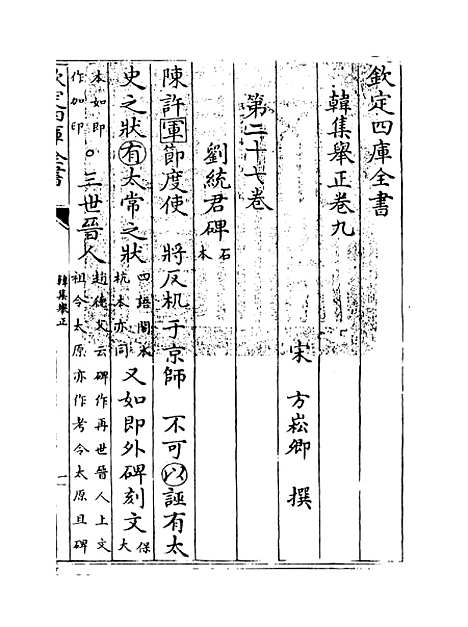 欽定四庫全書
韓集舉正卷九
宋 方崧卿 撰
第二十七卷
劉統君碑石本
陳許軍節度使 將反机于京師 不可以誣有太
史之狀有太常之狀四語閣本杭本亦同 又如即外碑刻文保大
本如即作加印○三世晉人趙德父云碑作再世晉人上文祖令太原亦作考令太原且碑
韓集舉正
一